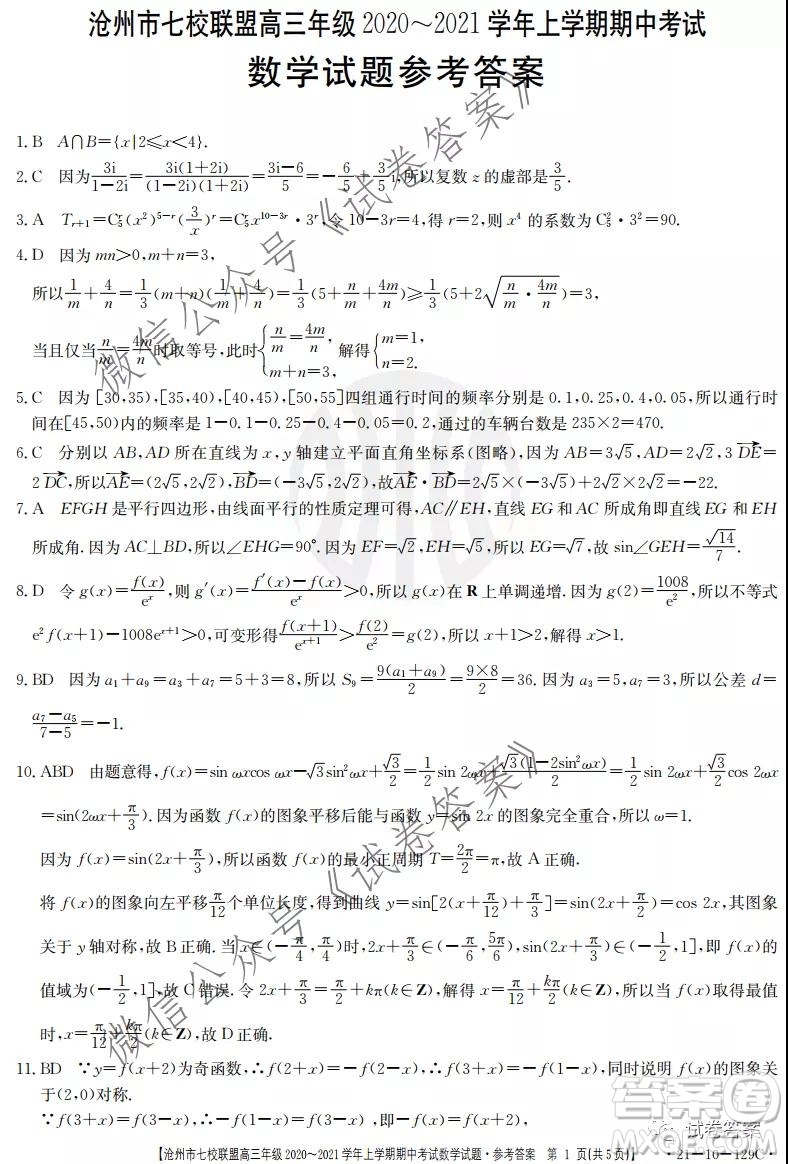 沧州市七校联盟高三年级 2020～2021 学年上学期期中考试
数学试题参考答案
1. B A∩B={x|2≤x<4}.
2. C 因为 3i/(1-2i) = 3i(1+2i)/((1-2i)(1+2i)) = (3i-6)/5 = -6/5 + 3/5 i,所以复数 z 的虚部是 3/5.
3. A T_{r+1}=C_5^r(x²)^{5-r}(3/x)^r=C_5^r x^{10-3r}·3^r,令 10-3r=4,得 r=2,则 x⁴ 的系数为 C_5^2·3²=90.
4. D 因为 mn>0,m+n=3,
所以 1/m + 4/n = 1/3 (m+n)(1/m + 4/n) = 1/3 (5+ n/m + 4m/n) ≥ 1/3 (5+2√(n/m · 4m/n))=3,
当且仅当 n/m = 4m/n 时取等号,此时 { n/m = 4m/n, m+n=3, 解得 { m=1, n=2.
5. C 因为[30,35),[35,40),[40,45),[50,55]四组通行时间的频率分别是 0.1,0.25,0.4,0.05,所以通行时
间在[45,50)内的频率是 1-0.1-0.25-0.4-0.05=0.2,通过的车辆台数是 235×2=470.
6. C 分别以 AB,AD 所在直线为 x,y 轴建立平面直角坐标系(图略),因为 AB=3√5,AD=2√2,3 DE→=
2 DC→,所以AE→=(2√5,2√2),BD→=(-3√5,2√2),故AE→·BD→=2√5×(-3√5)+2√2×2√2=-22.
7. A EFGH 是平行四边形,由线面平行的性质定理可得,AC∥EH,直线 EG 和 AC 所成角即直线 EG 和 EH
所成角.因为 AC⊥BD,所以∠EHG=90°.因为 EF=√2,EH=√5,所以 EG=√7,故 sin∠GEH=√14/7.
8. D 令 g(x)=f(x)/e^x,则 g′(x)=(f′(x)-f(x))/e^x>0,所以 g(x)在 R 上单调递增.因为 g(2)=1008/e²,所以不等式
e²f(x+1)-1008e^{x+1}>0,可变形得 f(x+1)/e^{x+1}>f(2)/e²=g(2),所以 x+1>2,解得 x>1.
9. BD 因为 a₁+a₉=a₃+a₇=5+3=8,所以 S₉=9(a₁+a₉)/2=9×8/2=36.因为 a₃=5,a₇=3,所以公差 d=
(a₇-a₅)/(7-5)=-1.
10. ABD 由题意得,f(x)=sin ωxcos ωx-√3sin²ωx+√3/2=1/2 sin 2ωx+√3(1-2sin²ωx)/2=1/2 sin 2ωx+√3/2 cos 2ωx
=sin(2ωx+π/3).因为函数 f(x)的图象平移后能与函数 y=sin 2x 的图象完全重合,所以 ω=1.
因为 f(x)=sin(2x+π/3),所以函数 f(x)的最小正周期 T=2π/2=π,故 A 正确.
将 f(x)的图象向左平移 π/12 个单位长度,得到曲线 y=sin[2(x+π/12)+π/3]=sin(2x+π/2)=cos 2x,其图象
关于 y 轴对称,故 B 正确.当 x∈(-π/4,π/4)时,2x+π/3∈(-π/6,5π/6),sin(2x+π/3)∈(-1/2,1],即 f(x)的
值域为(-1/2,1],故 C 错误.令 2x+π/3=π/2+kπ(k∈Z),解得 x=π/12+kπ/2(k∈Z),所以当 f(x)取得最值
时,x=π/12+kπ/2(k∈Z),故 D 正确.
11. BD ∵y=f(x+2)为奇函数,∴f(2+x)=-f(2-x),∴f(3+x)=-f(1-x),同时说明 f(x)的图象关
于(2,0)对称.
∵f(3+x)=f(3-x),∴-f(1-x)=f(3-x),即-f(x)=f(x+2),
【沧州市七校联盟高三年级 2020～2021 学年上学期期中考试数学试题·参考答案 第 1 页(共 5 页)】 ·21-10-129C·
微信公众号《试卷答案》
微信公众号《试卷答案》
试卷答案